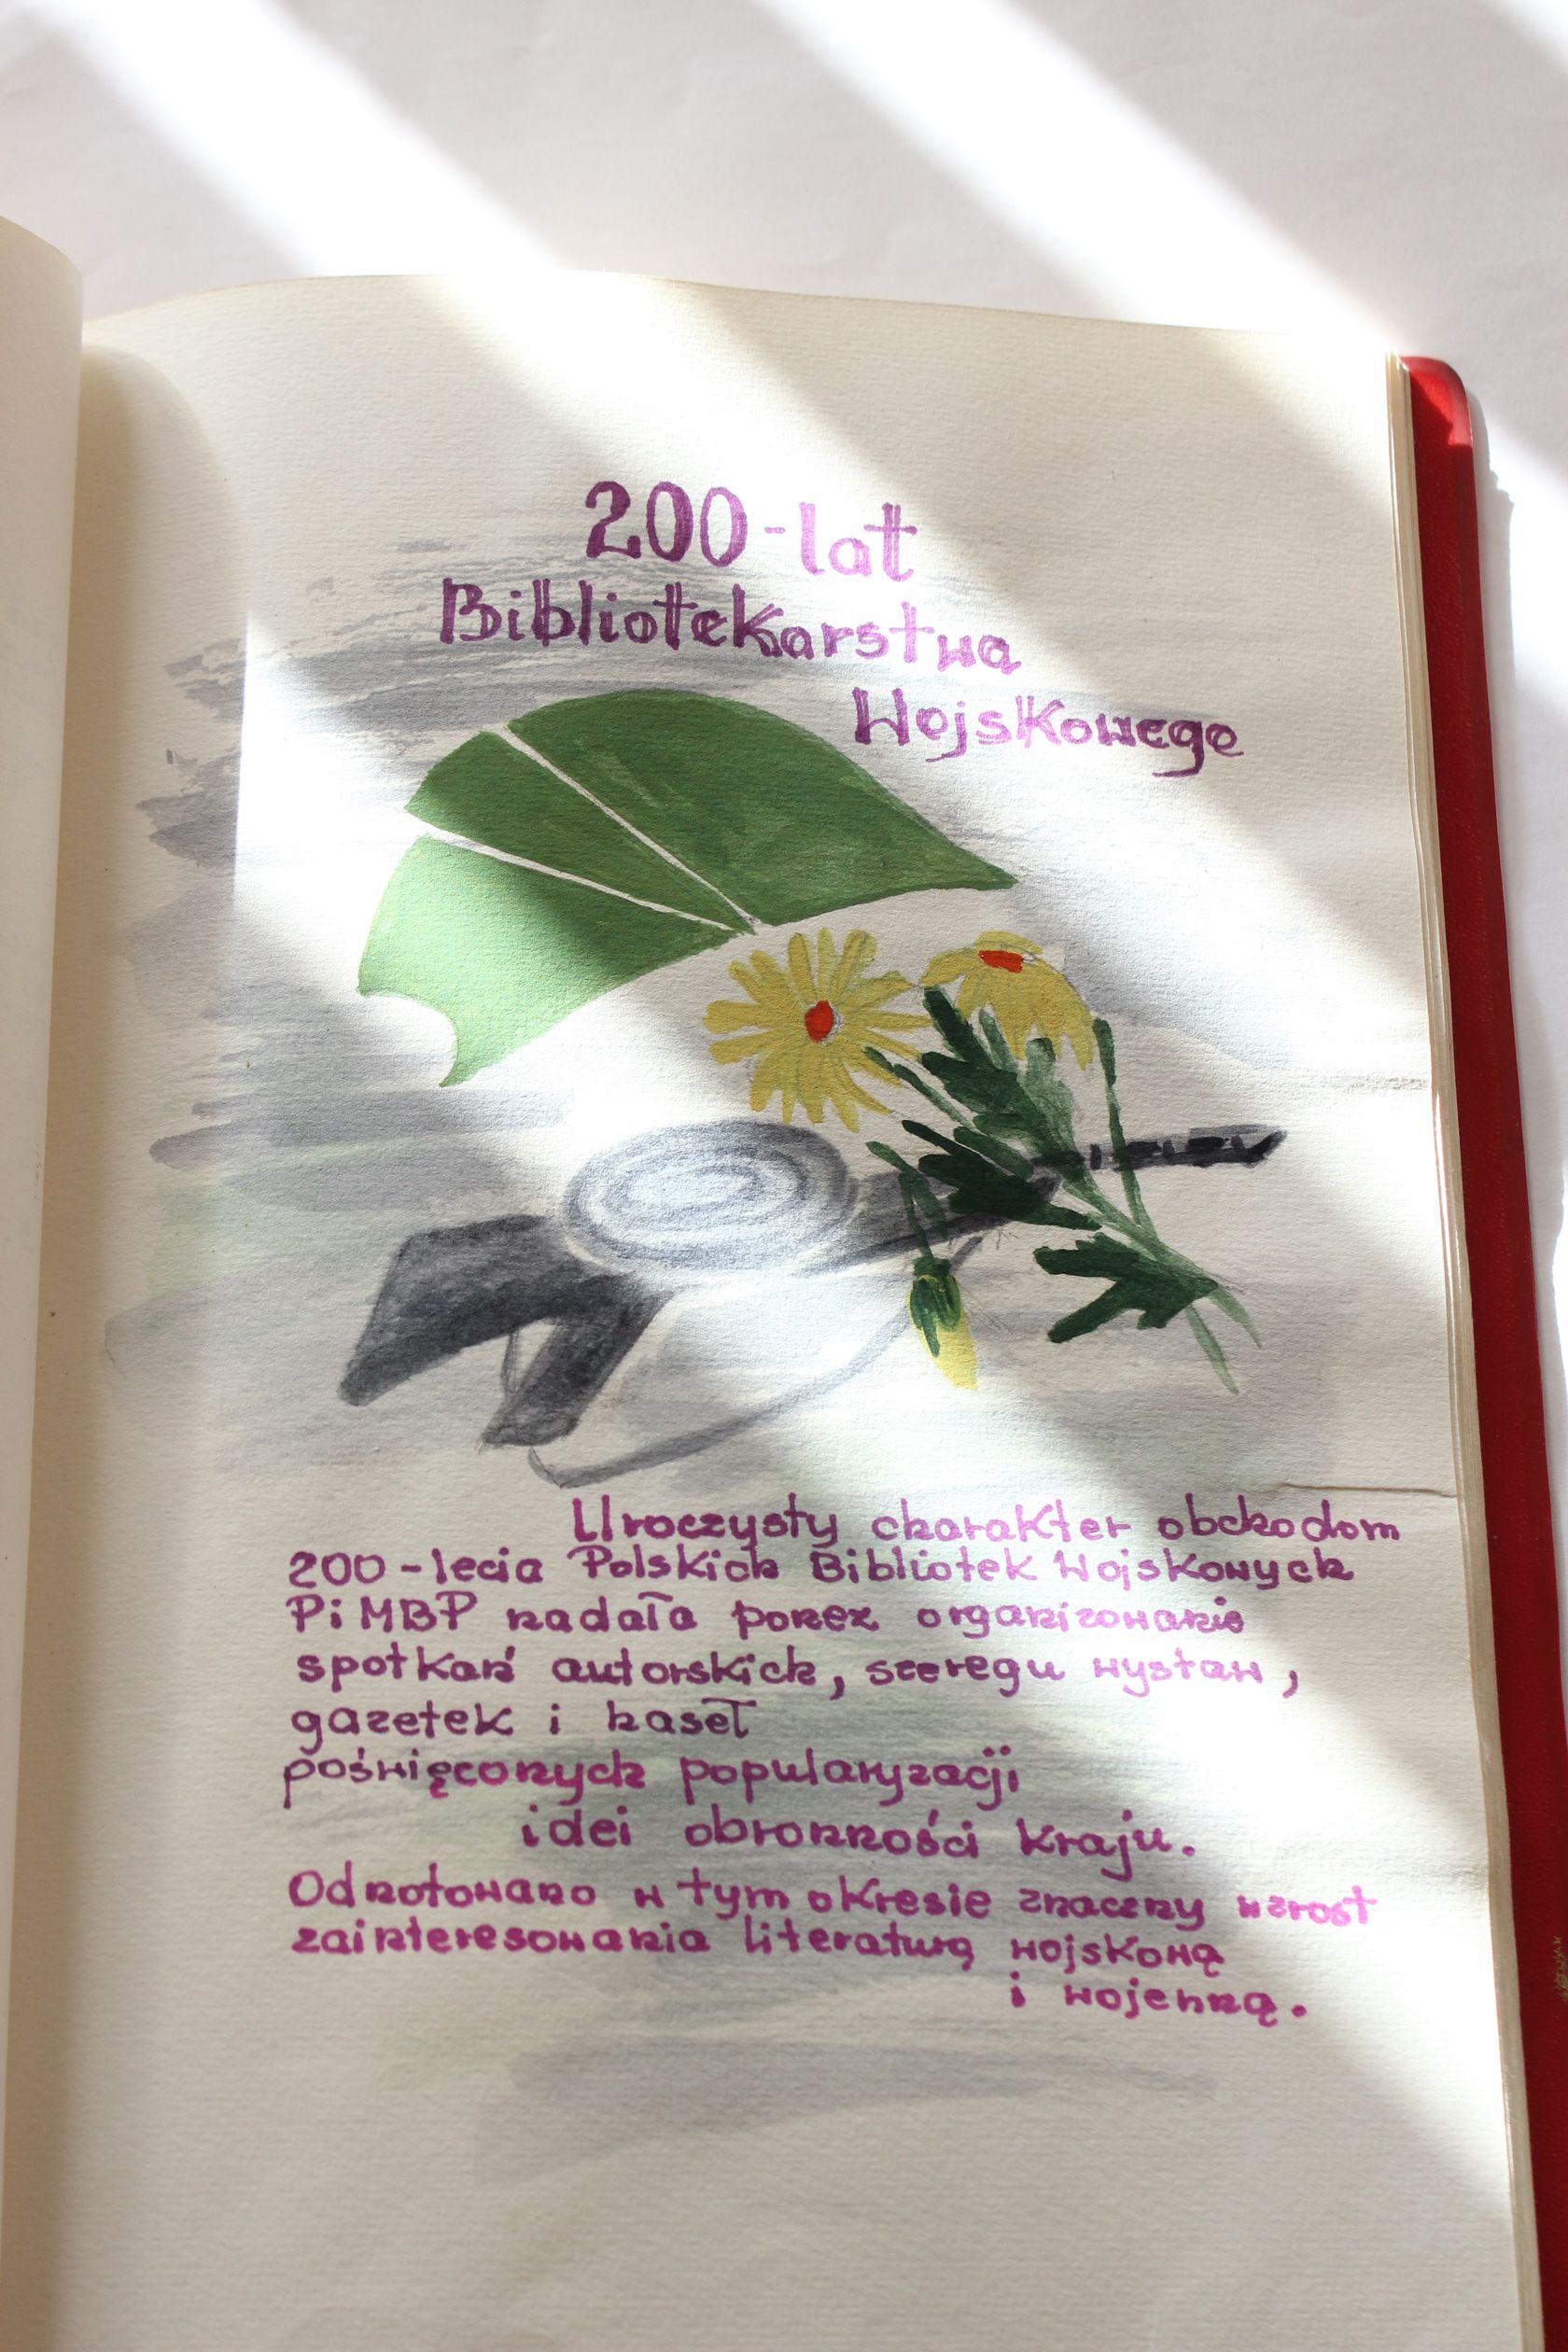 200-lat
Bibliotekarstwa
Wojskowego
Uroczysty charakter obchodom
200-lecia Polskich Bibliotek Wojskowych
PiMBP nadała ponez organizowanie
spotkań autorskich, szeregu wystaw,
gazetek i haseł
poświęconych popularyzacji
idei obronności kraju.
Odnotowano w tym okresie znaczny wzrost
zainteresowania literaturą wojskową
i wojenną.